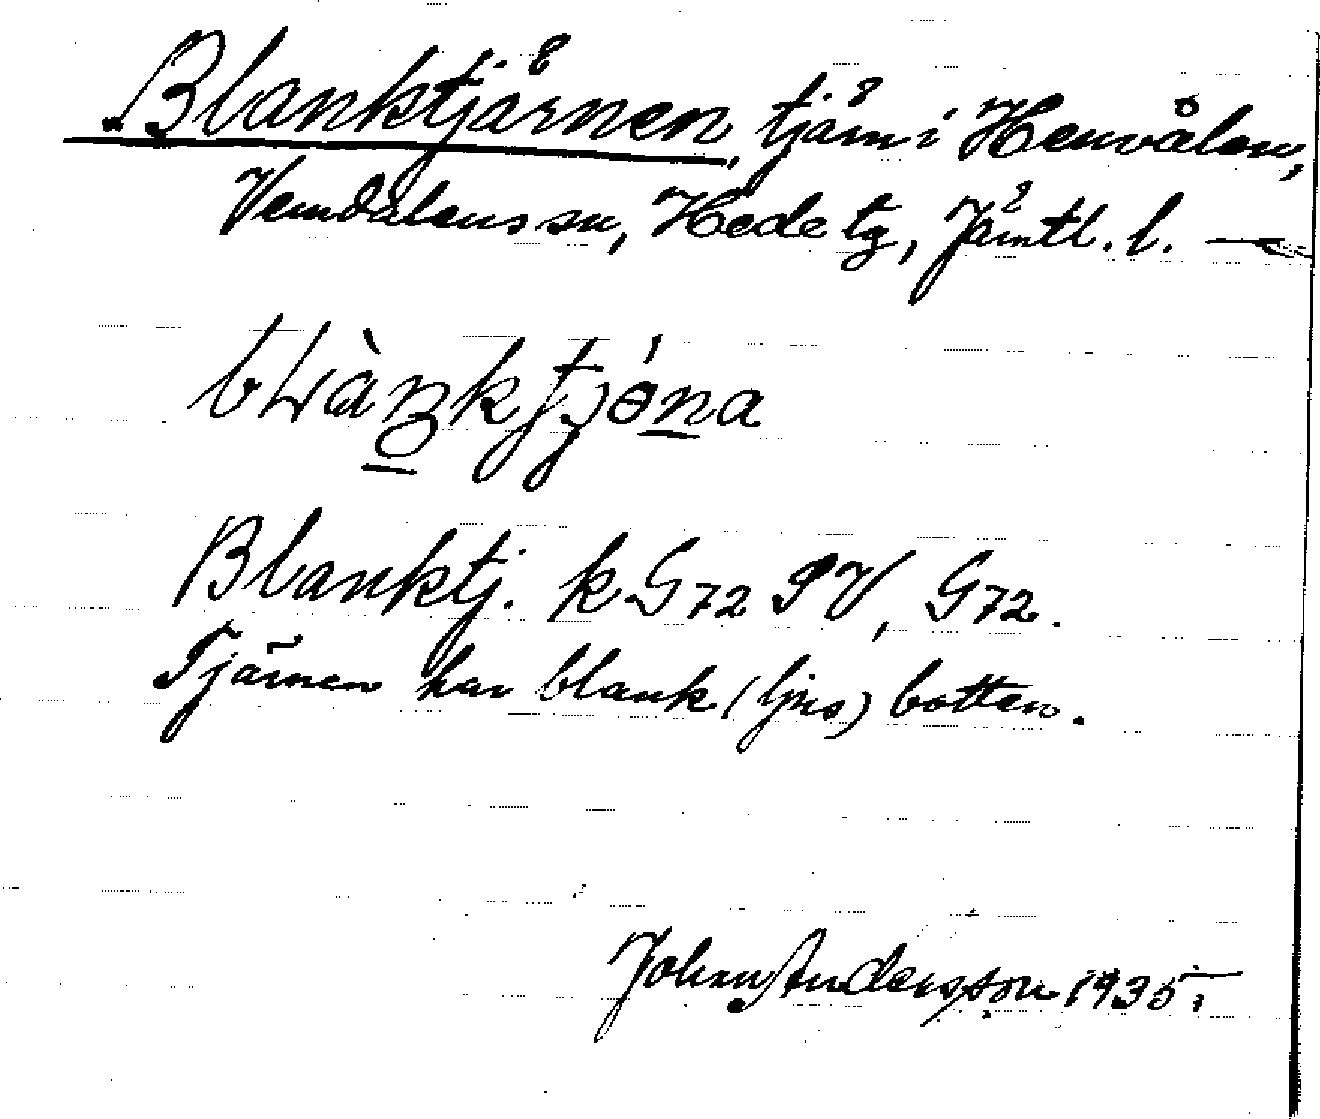 Blanktjärnen, tjärn i Henvålen,
Vemdalens sn, Hede tg, Jämtl. l. —
Blanktj. k G72 SV, G72.
Tjärnen har blank (ljus) botten.
John Andersson 1935.